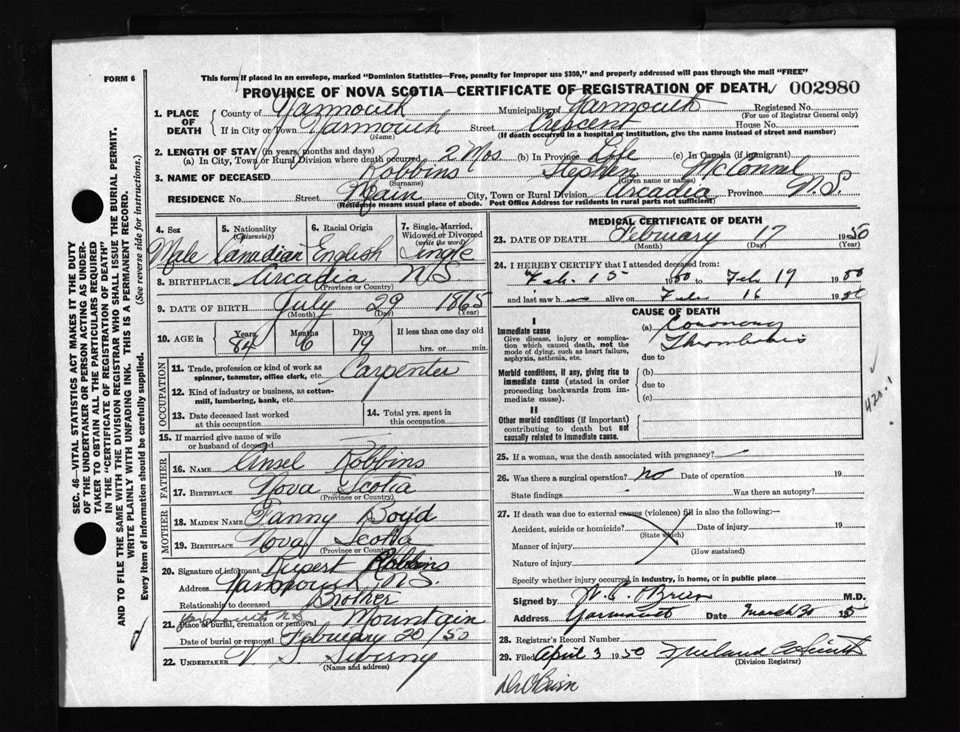 FORM 6
This form if placed in an envelope, marked "Dominion Statistics—Free, penalty for improper use $300," and properly addressed will pass through the mail "FREE"
PROVINCE OF NOVA SCOTIA—CERTIFICATE OF REGISTRATION OF DEATH 002980
1. PLACE OF DEATH County of Yarmouth Municipality of Yarmouth Registered No.
(For use of Registrar General only)
If in City or Town Yarmouth Street Crescent House No.
(Name) (If death occurred in a hospital or institution, give the name instead of street and number)
2. LENGTH OF STAY (in years, months and days)
(a) In City, Town or Rural Division where death occurred 2 Mos. (b) In Province Life (c) In Canada (if immigrant)
3. NAME OF DECEASED Robbins Stephen McConnel
(Surname) (Given name or names)
RESIDENCE No. Street Main City, Town or Rural Division Arcadia Province N.S.
(Residence means usual place of abode. Post Office Address for residents in rural parts not sufficient)
4. Sex 5. Nationality (Citizenship) 6. Racial Origin 7. Single, Married, Widowed or Divorced (write the word)
Male Canadian English Single
8. BIRTHPLACE Arcadia N.S
(Province or Country)
9. DATE OF BIRTH July 29 1865
(Month) (Day) (Year)
10. AGE in Years Months Days If less than one day old
84 6 19 hrs. or min.
OCCUPATION
11. Trade, profession or kind of work as spinner, teamster, office clerk, etc. Carpenter
12. Kind of industry or business, as cotton-mill, lumbering, bank, etc.
13. Date deceased last worked at this occupation 14. Total yrs. spent in this occupation
15. If married give name of wife or husband of deceased
FATHER
16. NAME Ansel Robbins
17. BIRTHPLACE Nova Scotia
(Province or Country)
MOTHER
18. MAIDEN NAME Fanny Boyd
19. BIRTHPLACE Nova Scotia
(Province or Country)
20. Signature of informant Rupert Robbins
Address Yarmouth N.S.
Relationship to deceased Brother
21. Place of burial, cremation or removal Yarmouth N.S. Mountain
Date of burial or removal February 20/50
22. UNDERTAKER V. S.
(Name and address)
MEDICAL CERTIFICATE OF DEATH
23. DATE OF DEATH February 17 1950
(Month) (Day) (Year)
24. I HEREBY CERTIFY that I attended deceased from:
Feb. 15 1950 to Feb 17 1950
and last saw h alive on Feb 16 1950
CAUSE OF DEATH
I
Immediate cause
Give disease, injury or complication which caused death, not the mode of dying, such as heart failure, asphyxia, asthenia, etc.
(a) Coronary Thrombosis
due to
Morbid conditions, if any, giving rise to immediate cause (stated in order proceeding backwards from immediate cause).
(b)
due to
(c)
II
Other morbid conditions (if important) contributing to death but not causally related to immediate cause.
420.1
25. If a woman, was the death associated with pregnancy?
26. Was there a surgical operation? No Date of operation 19
State findings Was there an autopsy?
27. If death was due to external causes (violence) fill in also the following:—
Accident, suicide or homicide? Date of injury 19
(State which)
Manner of injury
(How sustained)
Nature of injury
Specify whether injury occurred in industry, in home, or in public place
Signed by W. C. O'Brien M.D.
Address Yarmouth Date March 30
28. Registrar's Record Number
29. Filed April 3 1950
(Division Registrar)
Dr O'Brien
SEC. 46—VITAL STATISTICS ACT MAKES IT THE DUTY
OF THE UNDERTAKER OR PERSON ACTING AS UNDER-
TAKER TO OBTAIN ALL THE PARTICULARS REQUIRED
IN THE "CERTIFICATE OF REGISTRATION OF DEATH"
AND TO FILE THE SAME WITH THE DIVISION REGISTRAR WHO SHALL ISSUE THE BURIAL PERMIT.
WRITE PLAINLY WITH UNFADING INK. THIS IS A PERMANENT RECORD.
Every item of information should be carefully supplied. (See reverse side for instructions.)